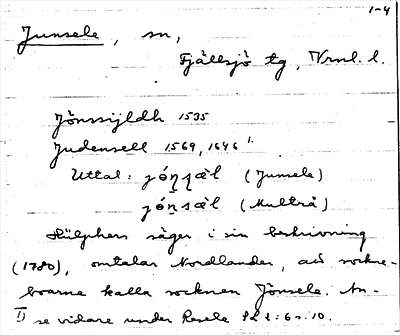 1-4
Junsele, sn,
Fjällsjö tg, Vrnl. l.
Jönssijldh 1535
Judensell 1569, 1646 1.
Uttal: (Junsele)
(Multrå)
Hülphers säger i sin beskrivning
(1780), omtalar Nordlander, att sockne-
boarne kalla socknen Jönsele. An-
1) se vidare under Resele